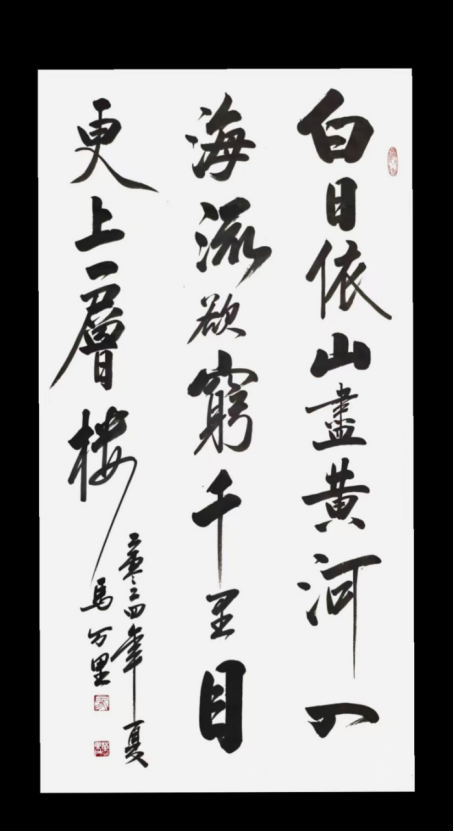 白日依山盡黄河入
海流欲窮千里目
更上一層楼
二零二四年夏
馬万里